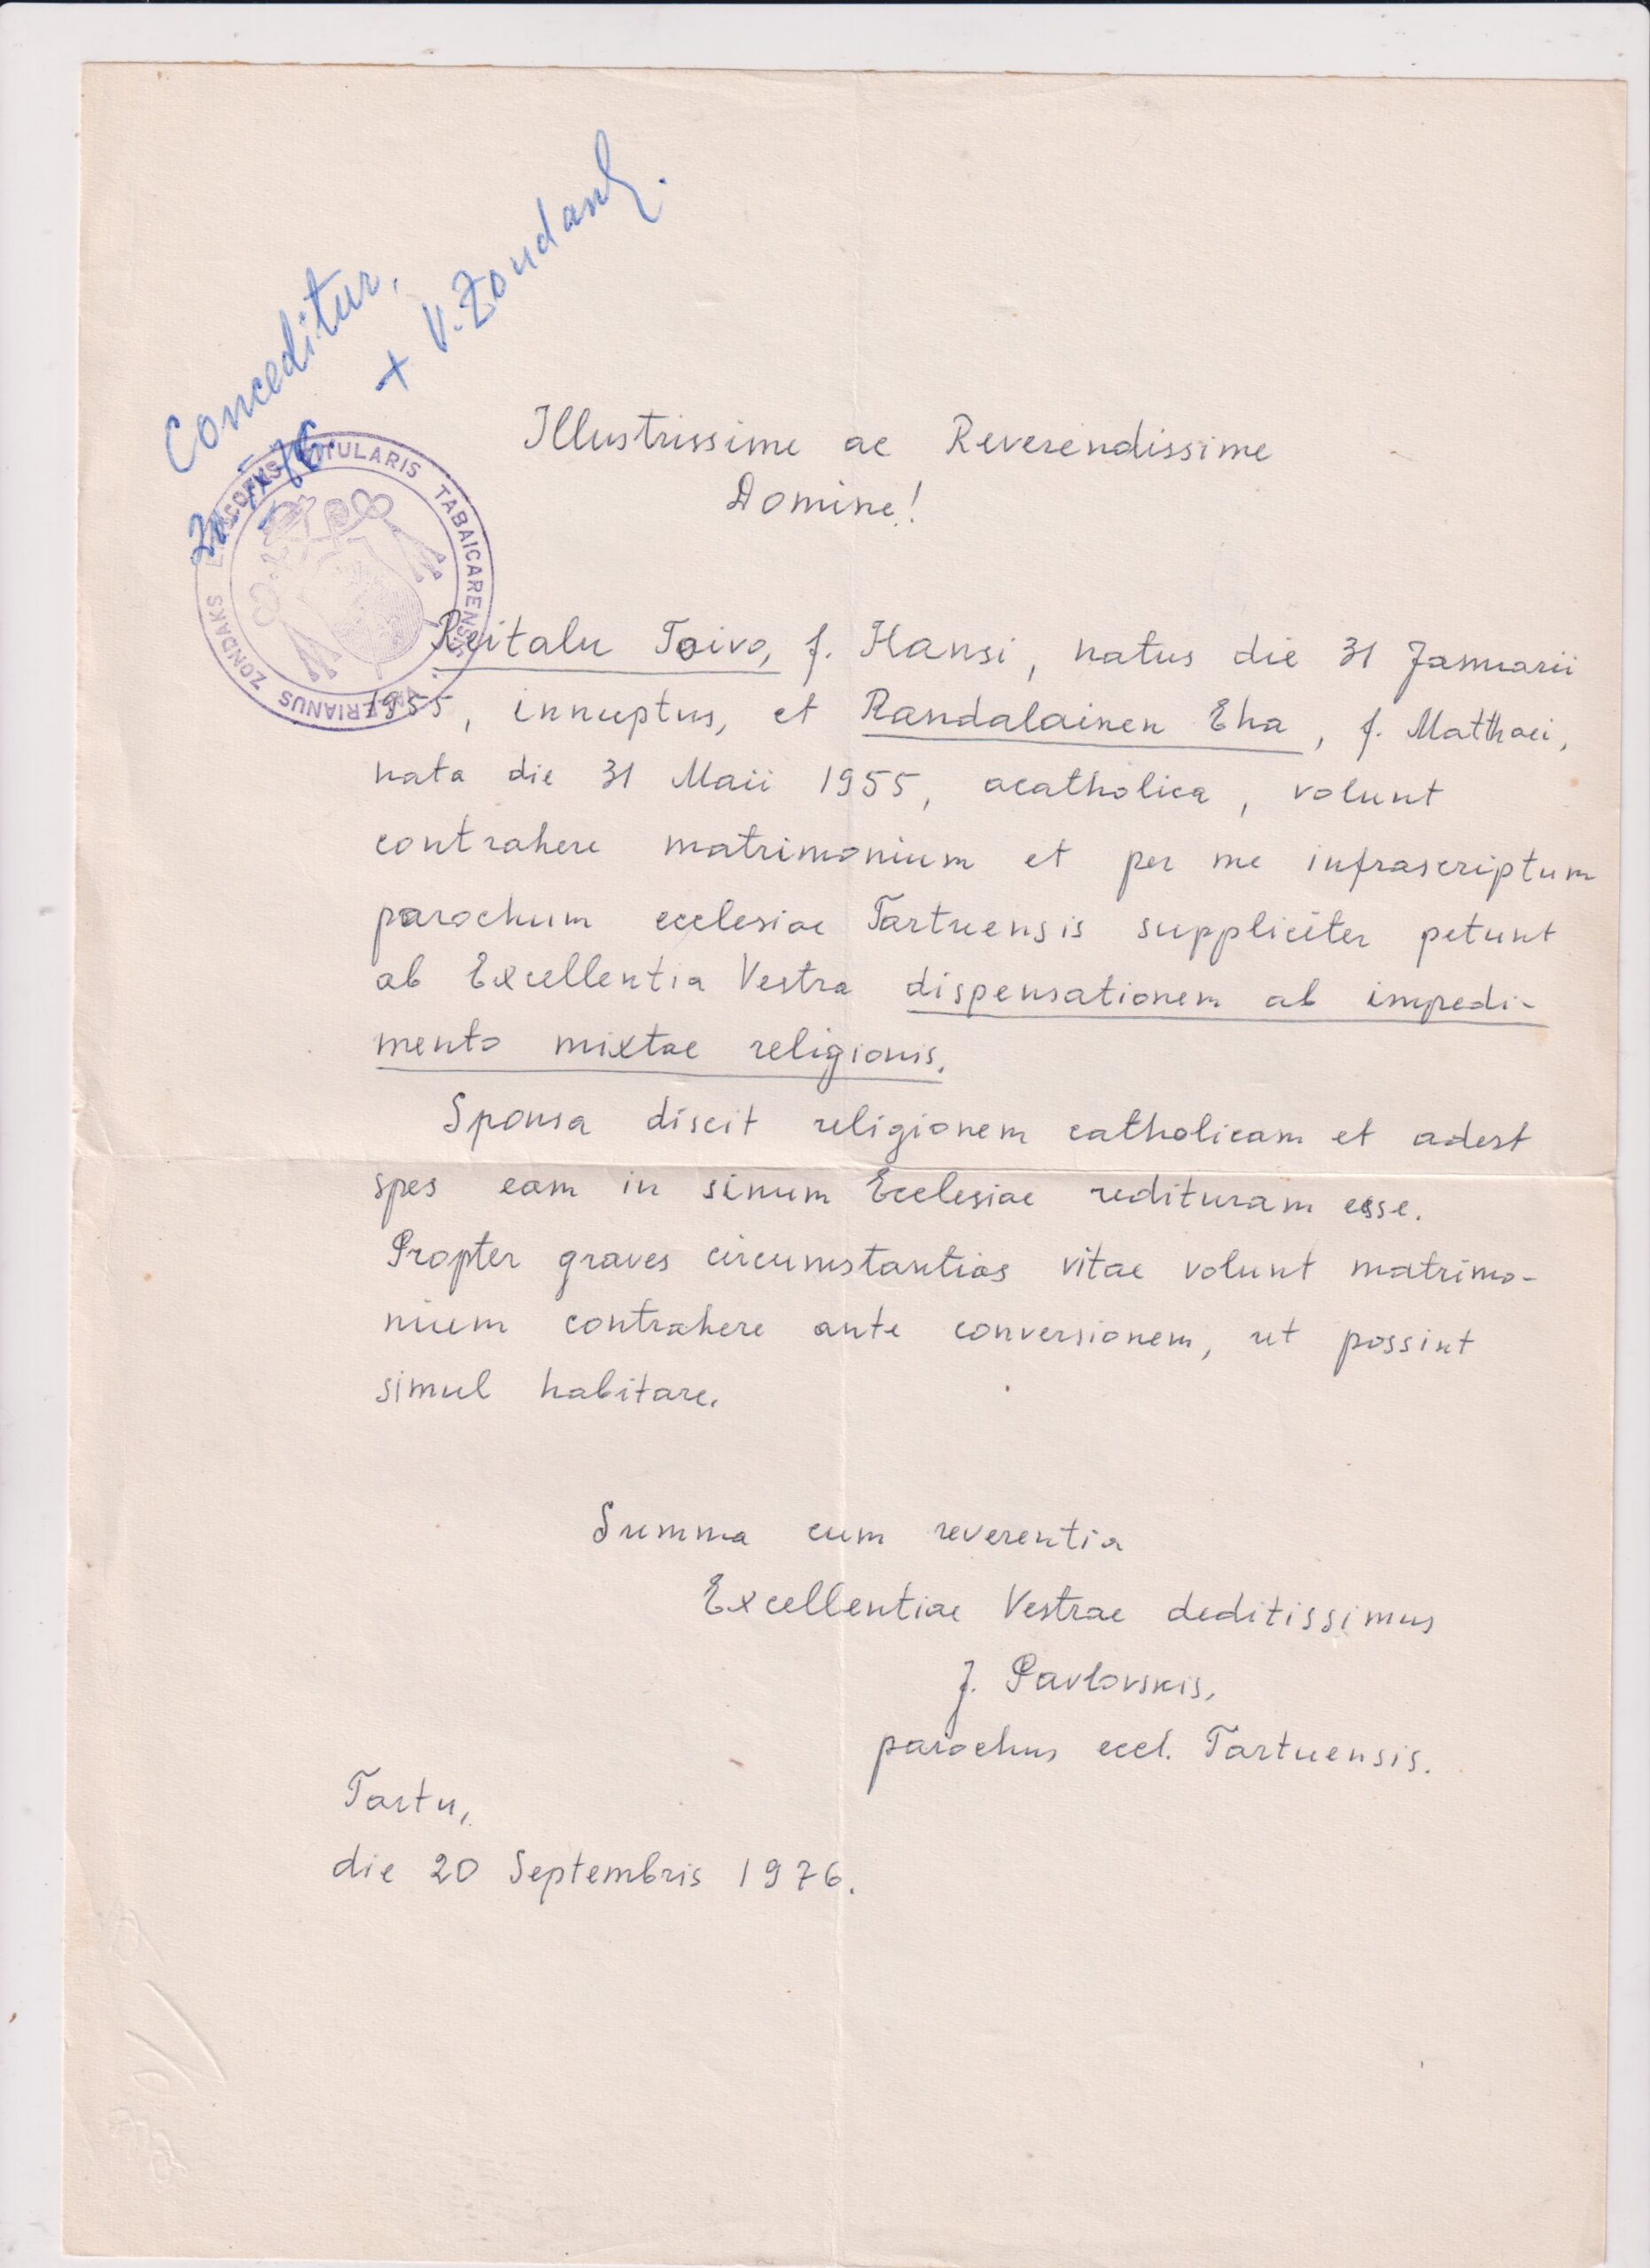 Conceditur.
+ V. Zondaks.
TITULARIS TABAICARENSIS
VALERIANUS ZONDAKS
Illustrissime ac Reverendissime
Domine!
Reitalu Toivo, f. Hansi, natus die 31 Januarii
1955, innuptus, et Randalainen Eha, f. Matthaei,
nata die 31 Maii 1955, acatholica, volunt
contrahere matrimonium et per me infrascriptum
parochum ecclesiae Tartuensis suppliciter petunt
ab Excellentia Vestra dispensationem ab impedi-
mento mixtae religionis.
Sponsa discit religionem catholicam et adest
spes eam in sinum Ecclesiae redituram esse.
Propter graves circumstantias vitae volunt matrimo-
nium contrahere ante conversionem, ut possint
simul habitare.
Summa cum reverentia
Excellentiae Vestrae deditissimus
J. Pavlovskis,
parochus eccl. Tartuensis.
Tartu,
die 20 Septembris 1976.